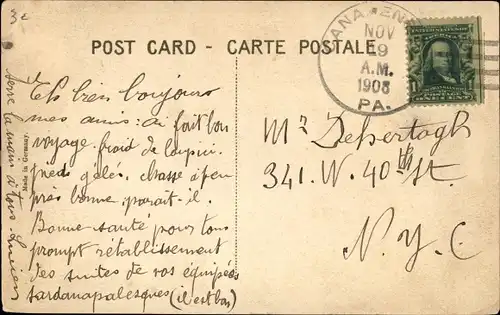 3c
POST CARD - CARTE POSTALE
ANA
NOV
19
A.M.
1908
PA.
Eh bien bonjours
mes amis: ai fait bon
voyage. froid de loup ici.
pieds gelés. chasse à peu
près bonne. parait-il.
Bonne santé pour tous
prompt rétablissement
des suites de vos équipées
sardanapalesques (il est bon)
serre la main à tous Lucien
Made in Germany.
Mr Dehertogh
341. W. 40th St.
N. Y. C